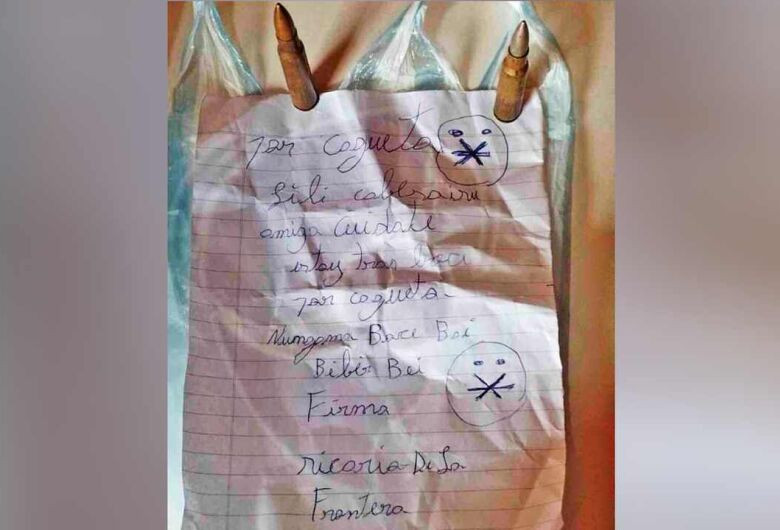 par coqueta
Lili cabesairu
amiga cuidate
estoy tras boci
par coqueta
Kungama Boce Boi
Bibir Bei
Firma
ricaria De La
Frontera